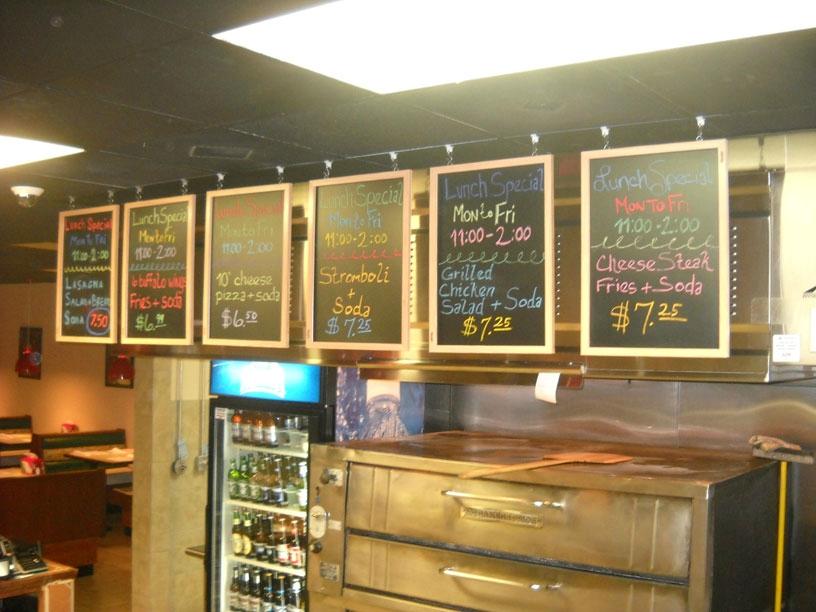 Lunch Special
Mon To Fri
11:00-2:00
Lasagna
Salad + Bread
Soda 7.50
Lunch Special
Mon to Fri
11:00-2:00
6 buffalo wings
Fries + soda
$6.99
Lunch Special
Mon to Fri
11:00-2:00
10" cheese
pizza + soda
$6.50
Lunch Special
Mon to Fri
11:00-2:00
Stromboli
+
Soda
$7.25
Lunch Special
Mon to Fri
11:00-2:00
Grilled
Chicken
Salad + Soda
$7.25
Lunch Special
Mon To Fri
11:00-2:00
Cheese Steak
Fries + Soda
$7.25